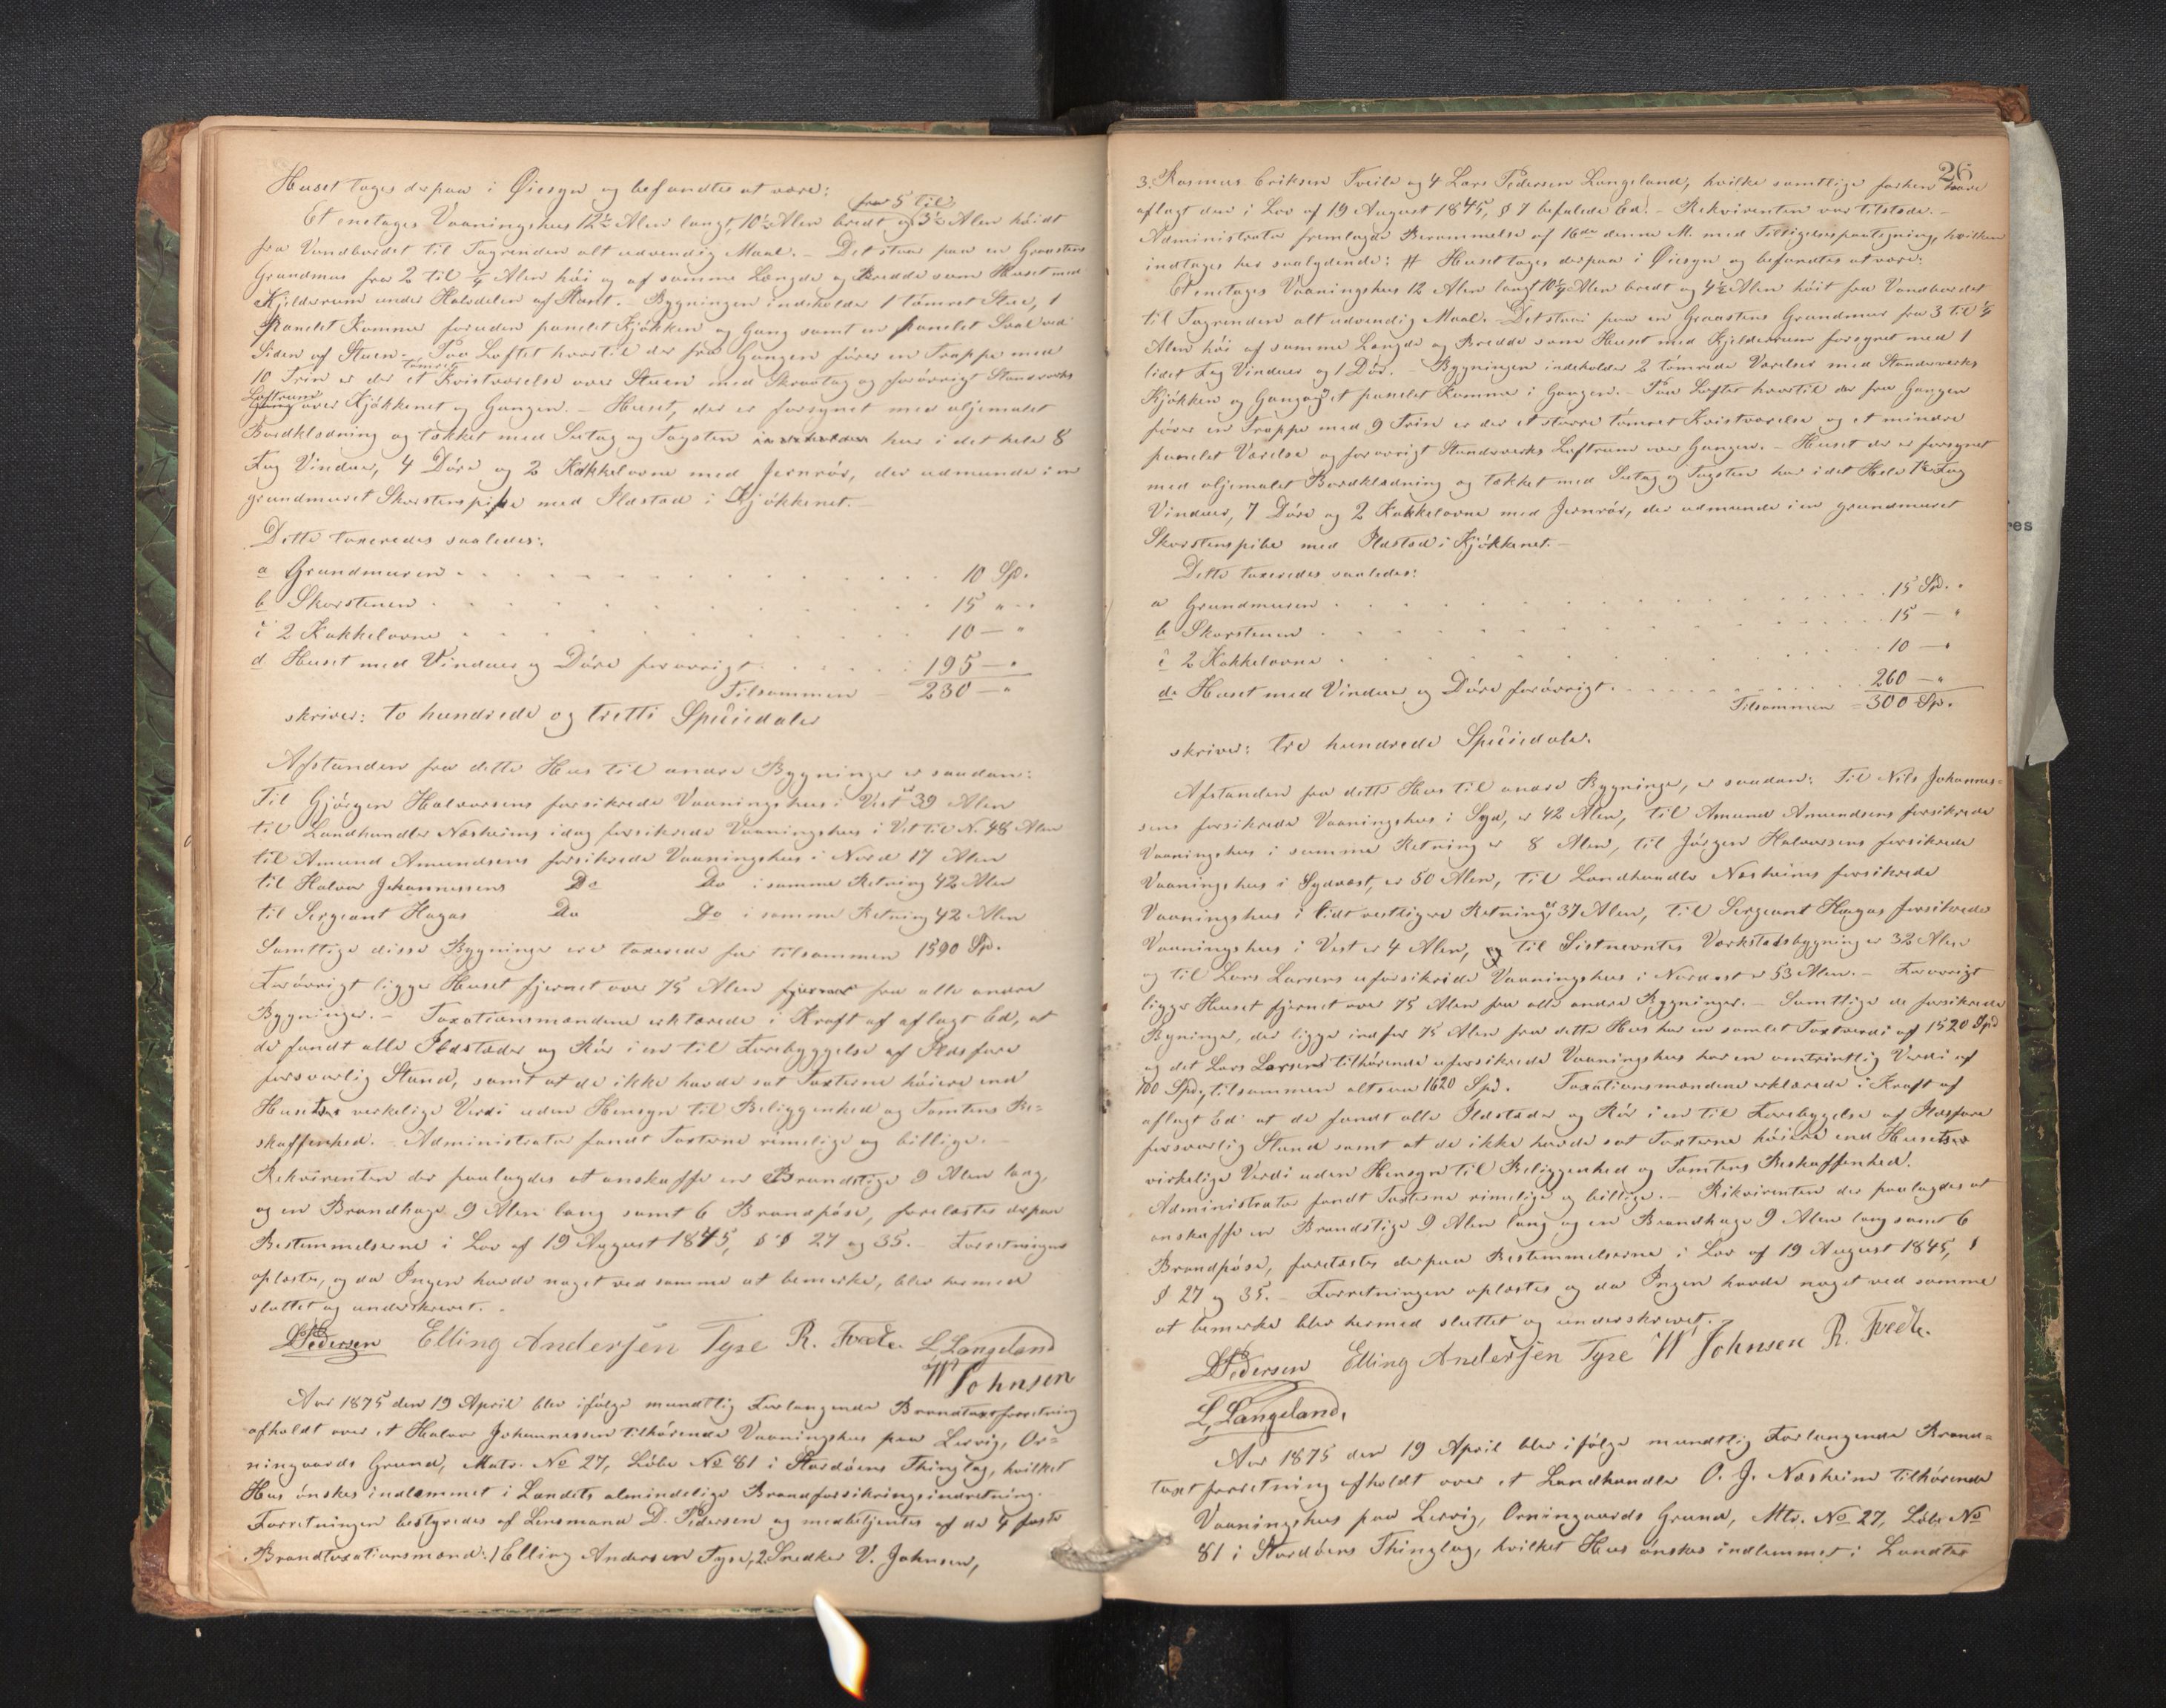 Huset toges derpaa i Øiesyn og befandtes at være:
fra 5 til
Et enetages Vaaningshus 12½ Alen langt, 10½ Alen bredt og 3½ Alen høidt
fra Vandbordet til Tagrenden alt udvendig Maal. - Det staar paa en Graastens
Grundmur fra 2 til ¼ Alen høi og af samme Længde og Bredde som Huset med
Kjelderum under Halvdelen af Huset. - Bygningen indeholder 1 tømret Stue, 1
Panelet Kammer foruden panelet Kjøkken og Gang samt en panelet Sval ved
Siden af Stuen. - Paa Loftet hvortil der fra Gangen fører en Trappe med
tømret
10 Trin er der et Kvistværelse over Stuen med Skraatag og forøvrigt Standværks
Loftrum
Gang over Kjøkkenet og Gangen. - Huset, der er forsynet med oljemalet
Bordklædning og tækket med Sutag og Tagsten har i det hele 8
Fag Vinduer, 4 Døre og 2 Kakkelovne med Jernrør, der udmunde i en
grundmuret Skorstenspibe med Ildsted i Kjøkkenet. -
Dette taxeredes saaledes:
a Grundmuren . . . 10 Sp.
b Skorstenen . . . 15 " -
c 2 Kakkelovne . . . 10 - "
d Huset med Vinduer og Døre forøvrigt . . . 195 - "
Tilsammen - 230 - "
skriver: to hundrede og tretti Speciedaler
Afstanden fra dette Hus til andre Bygninger er saadan:
Til Gjørgen Halvorsens forsikrede Vaaningshus i Vest er 39 Alen
til Landhandler Næsheims idag forsikrede Vaaningshus i Vst til N. 48 Alen
til Amund Amundsens forsikrede Vaaningshus i Nord 17 Alen
til Halvor Johannessens Do Do i samme Retning 42 Alen
til Sergeant Hagas Do Do i samme Retning 42 Alen
Samtlige disse Bygninger ere taxerede for tilsammen 1590 Sp.
Forøvrigt ligger Huset fjernet over 75 Alen fjernet fra alle andre
Bygninger. - Taxationsmændene erklærede i Kraft af aflagt Ed, at
de fandt alle Ildsteder og Rør i en til Forebyggelse af Ildsfare
forsvarlig Stand, samt at de ikke havde sat Taxterne høiere end
Husets verkelige Verdi uden Hensyn til Beliggenhed og Tomtens Be=
skaffenhed. - Administrator fandt Taxterne rimelige og billige. -
Rekvirenten der paalagdes at anskaffe en Brandstige 9 Alen lang,
og en Brandhage 9 Alen lang samt 6 Brandpøse, forelæstes derpaa
Bestemmelserne i Lov af 19 August 1845, § § 27 og 35. - Forretningen
oplæstes, og da Ingen havde noget ved samme at bemerke, blev hermed
sluttet og underskrevet. -
DPedersen Elling Andersen Tyse R. Tvedte L Langeland
W Johnsen
Aar 1875 den 19 April blev ifølge mundtlig Forlangende Brandtaxtforretning
afholdt over et Halvor Johannessen tilhørende Vaaningshus paa Lervig, Or=
ningaards Grund, Matr. No 27, Løbe No 81 i Stordøens Thinglag, hvilket
Hus ønskes indlemmet i Landets almindelige Brandforsikringsindretning. -
Forretningen bestyredes af Lensmand D. Pedersen og medbetjentes af de 4 faste
Brandtaxationsmænd: 1 Elling Andersen Tyse, 2 Snedker V. Johnsen,
26
3. Rasmus Eriksen Tveite og 4 Lars Pedersen Langeland, hvilke samtlige forhen have
aflagt den i Lov af 19 August 1845, § 7 befalede Ed. - Rekvirenten var tilstede. -
Administrator fremlagde Berammelse af 16de denne M. med Tilsigelsespaategning, hvilken
indtages her saalydende: # Huset toges derpaa i Øiesyn og befandtes at være:
Et enetages Vaaningshus 12 Alen langt 10¼ Alen bredt og 4½ Alen høit fra Vandbordet
til Tagrenden alt udvendig Maal. - Det staar paa en Graastens Grundmur fra 3 til ¼
Alen høi af samme Længde og Bredde som Huset med Kjelderum forsynet med 1
lidet Fag Vinduer og 1 Dør. - Bygningen indeholder 2 tømrede Værelser med Standværks
Kjøkken og Gang og et panelet Kammer i Gangen. - Paa Loftet hvortil der fra Gangen
fører en Trappe med 9 Trin er der et større tømret Kvistværelse og et mindre
panelet Værelse og forøvrigt Standværks Loftrum over Gangen. - Huset der er forsynet
med oljemalet Bordklædning og tækket med Sutag og Tagsten har i det Hele Fag
Vinduer, 7 Døre og 2 Kakkelovne med Jernrør, der udmunde i en grundmuret
Skorstenspibe med Ildsted i Kjøkkenet. -
Dette taxeredes saaledes:
a Grundmuren . . . 15 Sp. "
b Skorstenen . . . 15 - "
c 2 Kakkelovne . . . 10 - "
d. Huset med Vinduer og Døre forøvrigt . . . 260 - "
Tilsammen = 300 Sp.
skriver: tre hundrede Speciedaler.
Afstanden fra dette Hus til andre Bygninger, er saadan: Til Nils Johannes=
sens forsikrede Vaaningshus i Syd, er 42 Alen, til Amund Amundsens forsikrede
Vaaningshus i samme Retning er 8 Alen, til Jørgen Halvorsens forsikrede
Vaaningshus i Sydvest, er 50 Alen, til Landhandler Næsheims forsikrede
Vaaningshus i lidt vestligere Retning er 37 Alen, til Sergeant Hagas forsikrede
Vaaningshus i Vest er 4 Alen, og til Sistnevntes Værkstedsbygning er 32 Alen
og til Lars Larsens uforsikrede Vaaningshus i Nordost er 53 Alen. - Forøvrigt
ligger Huset fjernet over 75 Alen fra alle andre Bygninger. - Samtlige de forsikrede
Bygninger, der ligge indfor 75 Alen fra dette Hus har en samlet Taxtverdi af 1520 Spd
og det Lars Larsens tilhørende uforsikrede Vaaningshus har en omtrintlig Verdi af
100 Spd, tilsammen altsaa 1620 Spd. Taxationsmændene erklærede i Kraft af
aflagt Ed at de fandt alle Ildsteder og Rør i en til Forebyggelse af Ildsfare
forsvarlig Stand samt at de ikke havde sat Taxterne høiere end Husets
virkelige Verdi uden Hensyn til Beliggenhed og Tomtens Beskaffenhed.
Administrator fandt Taxterne rimelige og billige. - Rikvirenten der paalagdes at
anskaffe en Brandstige 9 Alen lang og en Brandhage 9 Alen lang samt 6
Brandpøse, forelæstes derpaa Bestemmelserne i Lov af 19 August 1845, §
§ 27 og 35. - Forretningen oplæstes og da Ingen havde noget ved samme
at bemerke blev hermed sluttet og underskrevet.
DPedersen Elling Andersen Tyse W Johnsen R. Tvedte.
L, Langeland,
Aar 1875 den 19 April blev ifølge mundtlig Forlangende Brand=
taxtforretning afholdt over et Landhandler O. J. Næsheim tilhørende
Vaaningshus paa Lervig, Orningaards Grund, Mtr. No 27, Løbe No
81 i Stordøens Thinglag, hvilket Hus ønskes indlemmet i Landets
res